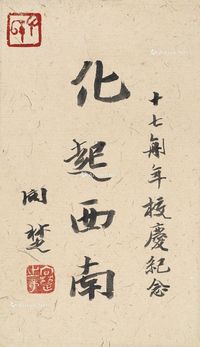 十七周年校慶紀念
化起西南
周楚